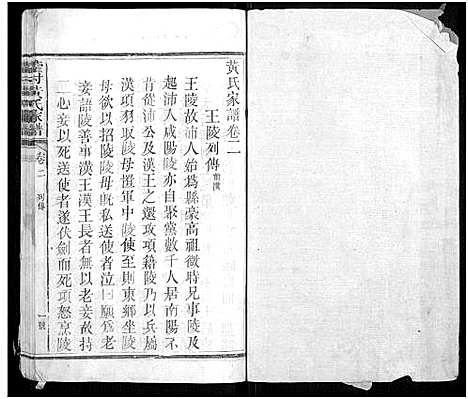 黃氏家譜卷二
王陵列傳前漢
王陵故沛人始爲縣豪高祖微時兄事陵及
起沛入咸陽陵亦自聚黨數千人居南陽不
肯從沛公及漢王之還攻項籍陵乃以兵屬
漢項羽取陵母置軍中陵使至則東鄉坐陵
母欲以招陵陵母旣私送使者泣曰願爲老
妾語陵善事漢王漢王長者無以老妾故持
二心妾以死送使者遂伏劍而死項怒烹陵
黃氏家譜
卷二
列傳
一號